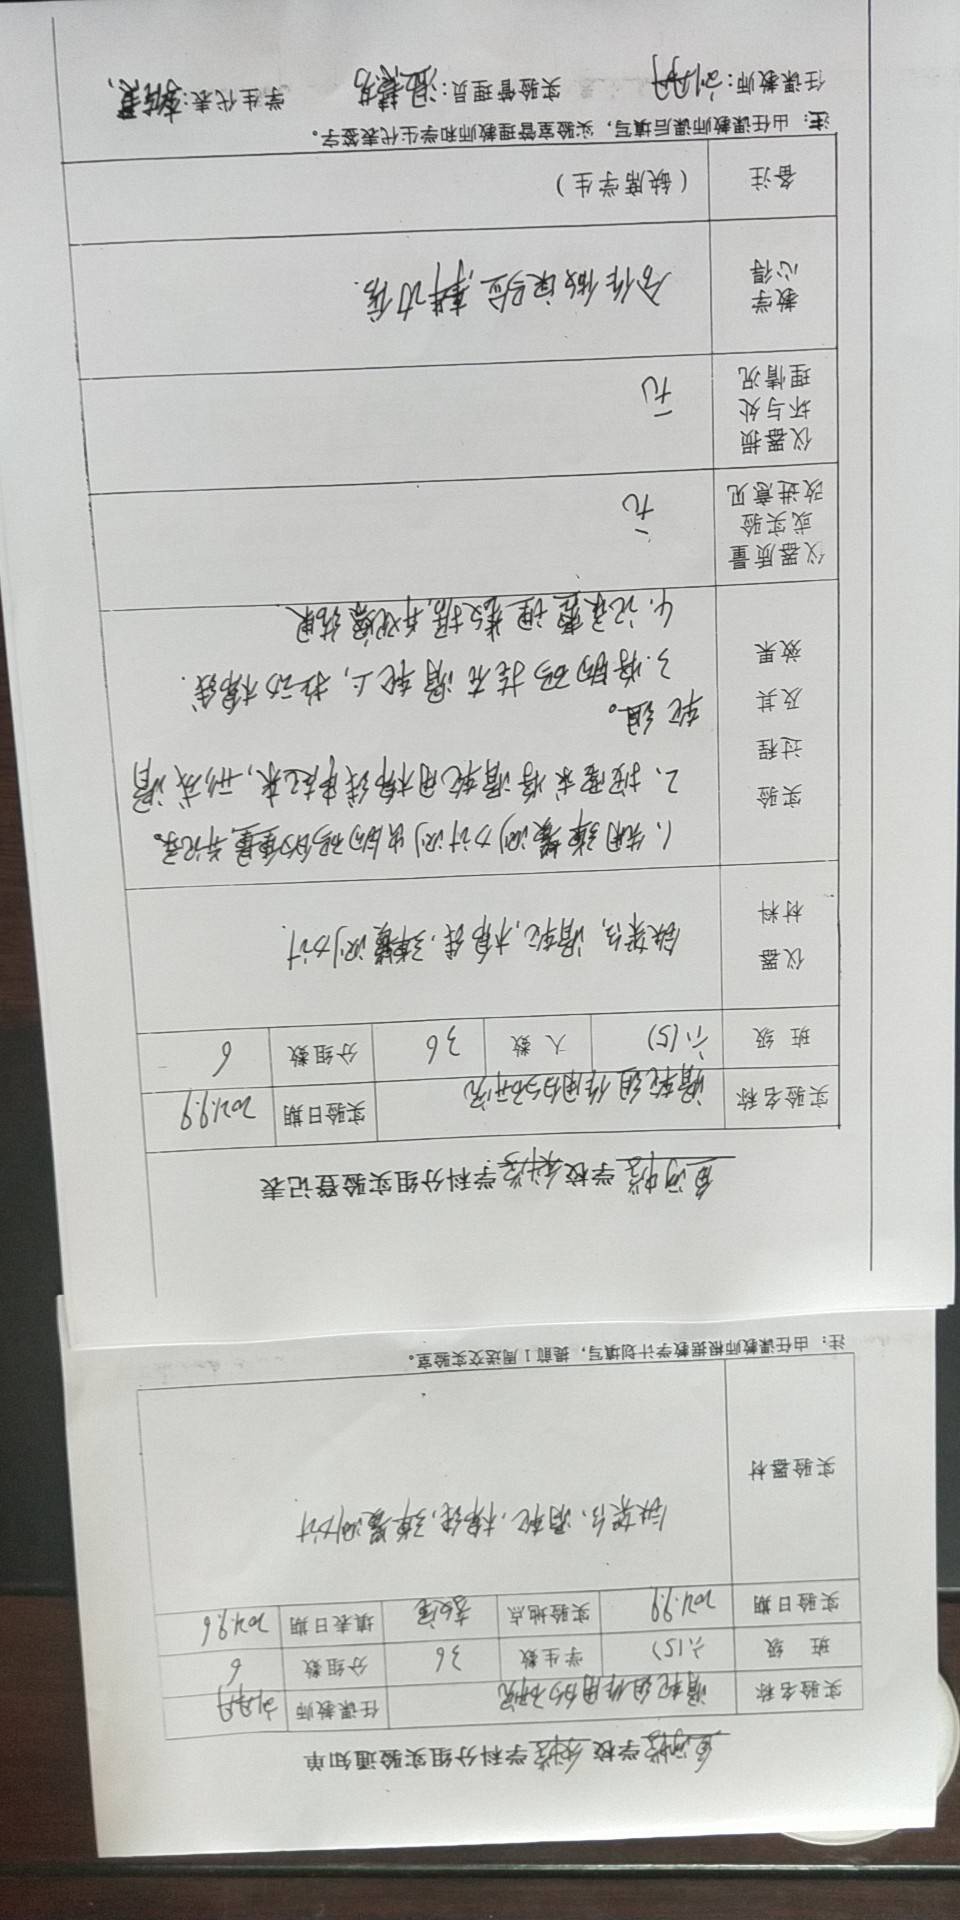 学校科学学科分组实验通知单
实验名称 滑轮组作用的研究 任课教师
班 级 六(5) 学生数 36 分组数 6
实验日期 2024.9.9 实验地点 教室 填表日期 2024.9.6
实验器材 铁架台,滑轮,棉线,弹簧测力计
注：由任课教师根据教学计划填写，提前1周送交实验室。
学校科学学科分组实验登记表
实验名称 滑轮组作用的研究 实验日期 2024.9.9
班 级 六(5) 人 数 36 分组数 6
仪器材料 铁架台,滑轮,棉线,弹簧测力计.
实验过程及其效果
1、先用弹簧测力计测出钩码的重量并记录。
2、按需求将滑轮用棉线串起来,形成滑
轮组。
3.将钩码挂在滑轮上,拉动棉线.
4.记录整理数据,并观察结果
仪器质量或实验改进意见 无
仪器损坏与处理情况 无
教学心得 合作做实验,
备注 （缺席学生）
注：由任课教师课后填写，实验室管理教师和学生代表签字。
任课教师: 实验管理员: 学生代表: